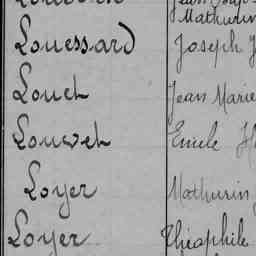 Mathurin
Louessard Joseph
Louet Jean Marie
Louvet Emile
Loyer Mathurin
Loyer Théophile